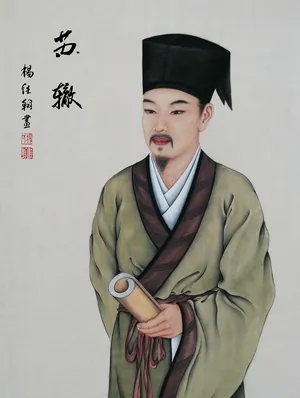 苏
辙
楊任翔畫